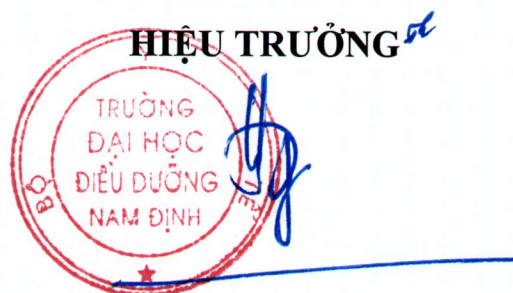 HIỆU TRƯỞNG
BỘ Y TẾ
TRƯỜNG
ĐẠI HỌC
ĐIỀU DƯỠNG
NAM ĐỊNH